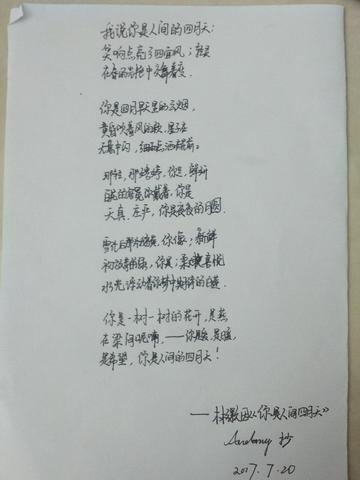 我说你是人间的四月天；
笑响点亮了四面风；轻灵
在春的光艳中交舞着变
你是四月早天里的云烟，
黄昏吹着风的软，星子在
无意中闪，细雨点洒在花前。
那轻，那娉婷，你是，鲜妍
百花的冠冕你戴着，你是
天真，庄严，你是夜夜的月圆。
雪化后那片鹅黄，你像；新鲜
初放芽的绿，你是；柔嫩喜悦
水光浮动着你梦中期待的白莲
你是一树一树的花开，是燕
在梁间呢喃，——你是爱，是暖，
是希望，你是人间的四月天！
——林徽因《你是人间四月天》
抄
2017.7.20